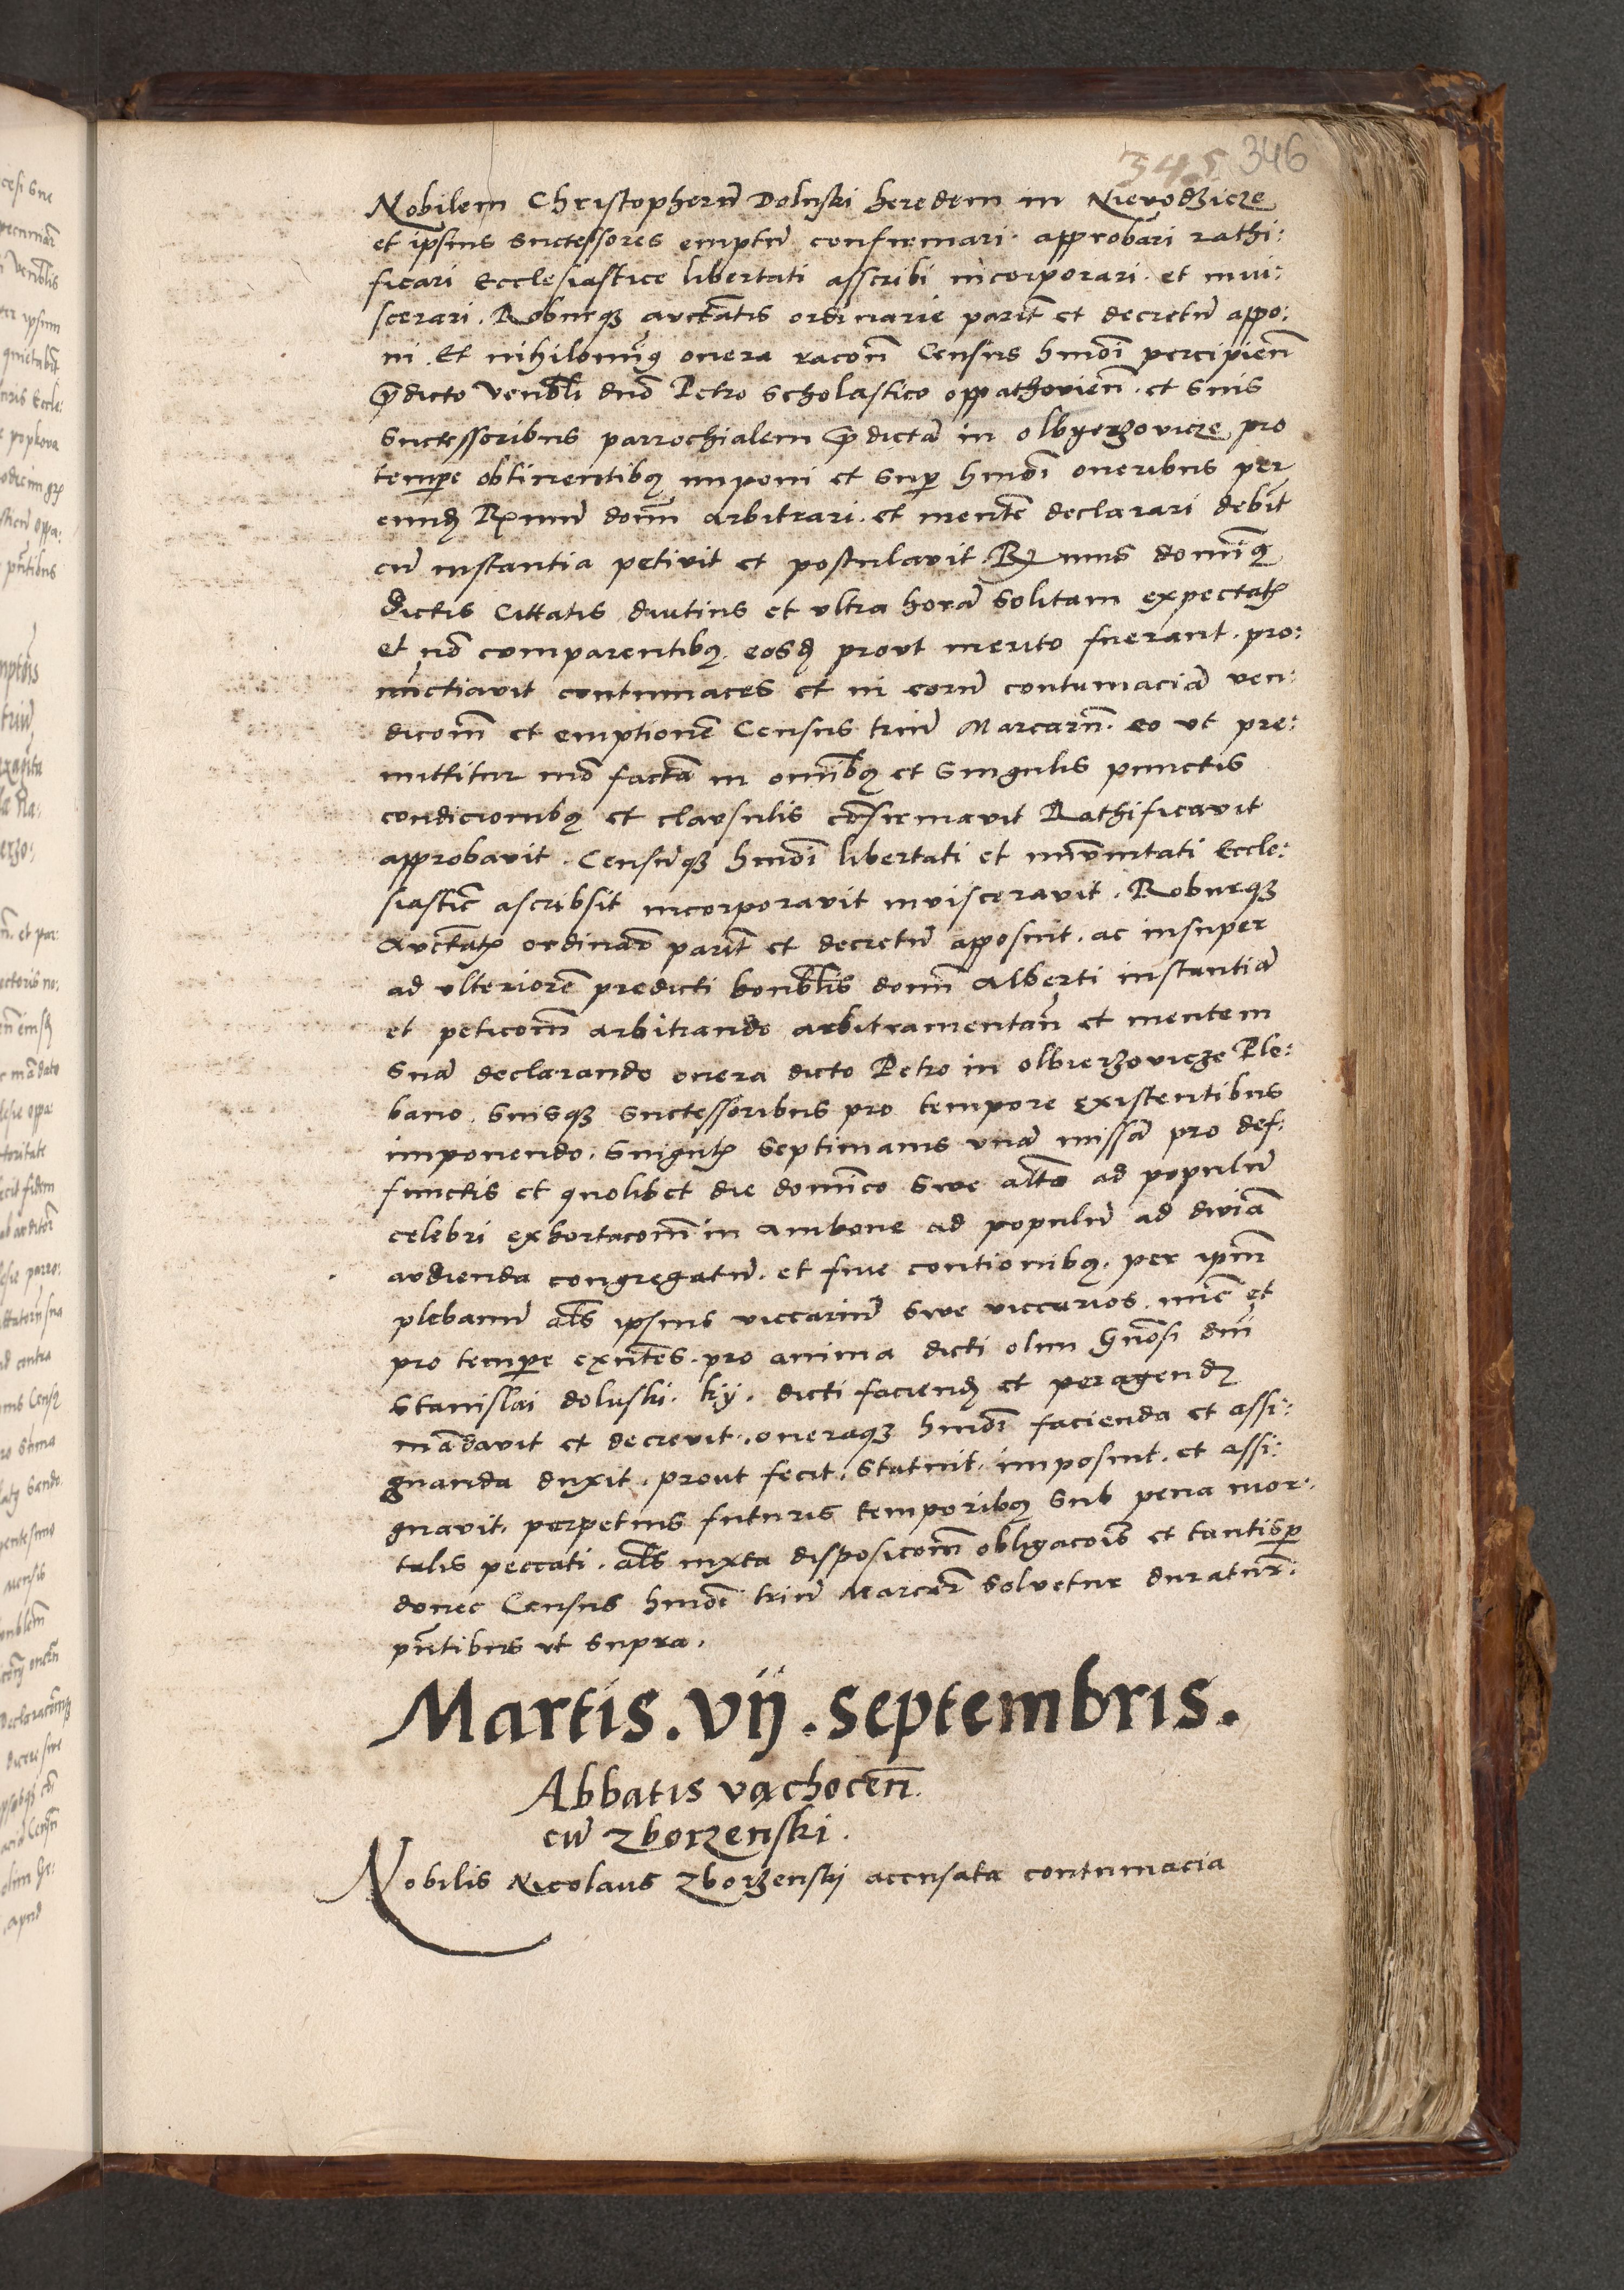 345 346
Nobilem Christopherū Doluski heredem in Nievodzicze
et ipsius successores emptū confirmari. approbari rathi:
ficari Ecclesiastice libertati asscribi incorporari. et invi:
scerari. Roburqz auctātis ordinarie parit̄ et decretū appo:
ni. Et nihilominꝯ onera racōn̄ Census hmōi percipien̄
p̄dicto Venbli dnō Petro scholastico oppathovien̄. et suis
successoribus parrochialem p̄dictā in olbyerzovicze pro
tempe obtinentibꝫ imponi et sup hmōi oneribus per
eundꝫ Rꝫmum̄ domn̄ arbitrari. et mentē declarari debit
cū instantia petivit et postulavit. Rꝫmus dominꝯ
dictis Cittatis diutius et ultra horā solitam expectatꝫ
et nō comparentibꝫ. eosdꝫ prout merito fuerant. pro:
nūctiavit contumaces et in eorū contumaciā ven:
dicōm̄ et emptionē Census triū Marcarū. eo ut pre:
mittitur mō factā in omībꝫ et singulis punctis
condicionibꝫ et clausulis cōfirmavit Rathificavit
approbavit. Censūqz hmōi libertati et īmūnitati Eccle:
siastic̄ ascribsit incorporavit invisceravit. Roburqz
Auctātꝫ ordināō parit̄ et decretū apposuit. ac insuper
ad ulteriorē predicti honblis domn̄ Alberti instantiā
et peticōm̄ arbitrando arbitramentan̄ et mentem
suā declarando onera dicto Petro in olbierzovicze Ple:
bano. suisqz successoribus pro tempore existentibus
imponendo. singultꝫ septimanis unā missā pro def:
functis et quolibet die dominco sive alto ad populū
celebri exhortacōm̄ in Ambone ad populū ad diviā
audienda congregatū. et sive contionibꝫ. per ipm̄
plebanū als̄ ipsius viccariū sive viccarios. nūc et
pro tempe exn̄tes. pro anima dicti olim Gnōsi dn̄i
Stanislai doluski. kij. dicti faciendꝫ et peragendꝫ
mādavit et decrevit. oneraqz hmōi facienda et assi:
gnanda duxit. prout fecit. statuit. imposuit. et assi:
gnavit. perpetuis futuris temporibꝫ sub pena mor:
talis peccati. als̄ iuxta disposicōm̄ obligacōis et tantisp
donec Census hmōi triū Marcar̄ solvetur duratur̄:
pn̄tibus ut supra.
Martis. vij. septembris.
Abbatis vąchocen̄.
cū zborzenski.
Nobilis Nicolaus zborzenskij accusata contumacia